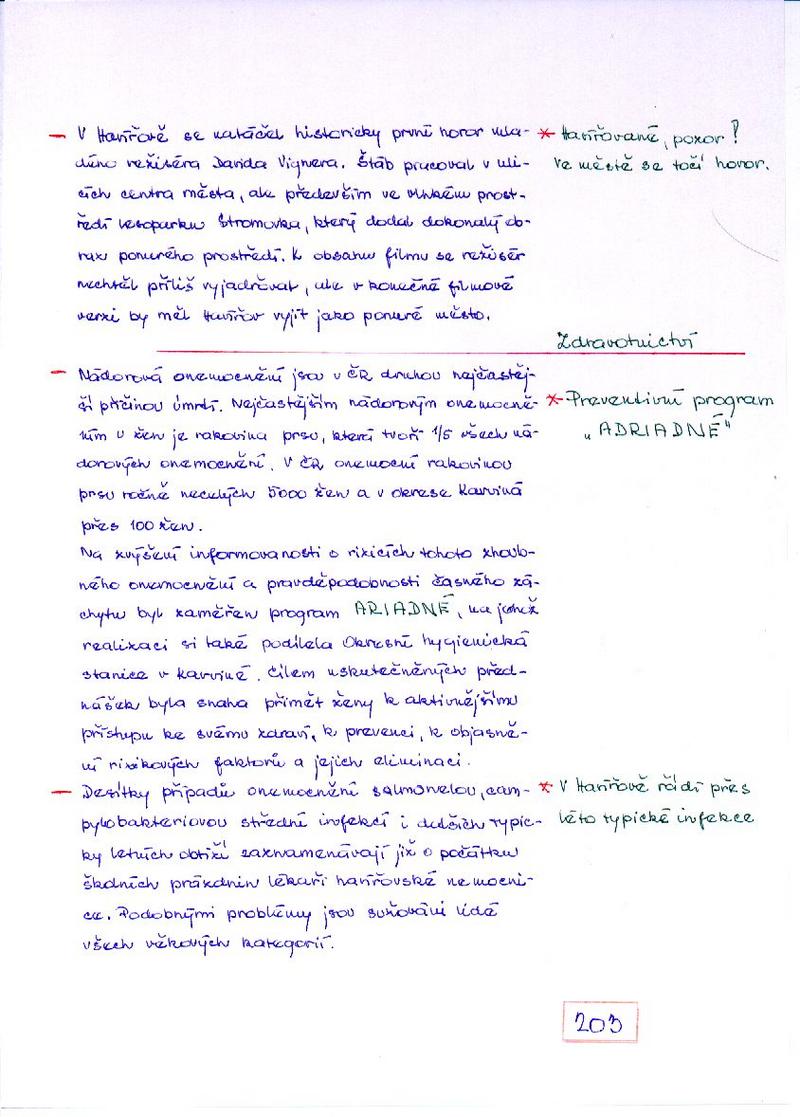 – V Havířově se natáčel historicky první horor mla-
dého režiséra Davida Vignera. Štáb pracoval v uli-
cích centra města, ale především ve vlhkém prost-
ředí lesoparku Stromovka, který dodal dokonalý ob-
raz ponurého prostředí. K obsahu filmu se režisér
nechtěl příliš vyjadřovat, ale v konečné filmové
verzi by měl Havířov vyjít jako ponuré město.
* Havířované, pozor!
Ve městě se točí horor.
Zdravotnictví
– Nádorová onemocnění jsou v ČR druhou nejčastěj-
ší příčinou úmrtí. Nejčastějším nádorovým onemocně-
ním u žen je rakovina prsu, která tvoří 1/5 všech ná-
dorových onemocnění. V ČR onemocní rakovinou
prsu ročně necelých 5000 žen a v okrese Karviná
přes 100 žen.
Na zvýšení informovanosti o rizicích tohoto zhoub-
ného onemocnění a pravděpodobnosti časného zá-
chytu byl zaměřen program ARIADNÉ, na jehož
realizaci si také podílela Okresní hygienická
stanice v Karviné. Cílem uskutečněných před-
nášek byla snaha přimět ženy k aktivnějšímu
přístupu ke svému zdraví, k prevenci, k objasně-
ní rizikových faktorů a jejich eliminaci.
* Preventivní program
„ADRIADNÉ"
– Desítky případů onemocnění salmonelou, cam-
pylobakteriovou střevní infekcí i dalších typic-
ky letních obtíží zaznamenávají již o počátku
školních prázdnin lékaři havířovské nemocni-
ce. Podobnými problémy jsou sužováni lidé
všech věkových kategorií.
* V Havířově řádí přes
léto typické infekce
203